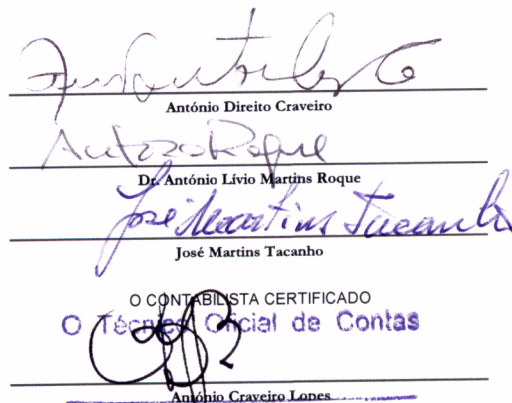 António Direito Craveiro
António Roque
Dr. António Lívio Martins Roque
José Martins Tacanho
José Martins Tacanho
O CONTABILISTA CERTIFICADO
O Técnico Oficial de Contas
António Craveiro Lopes